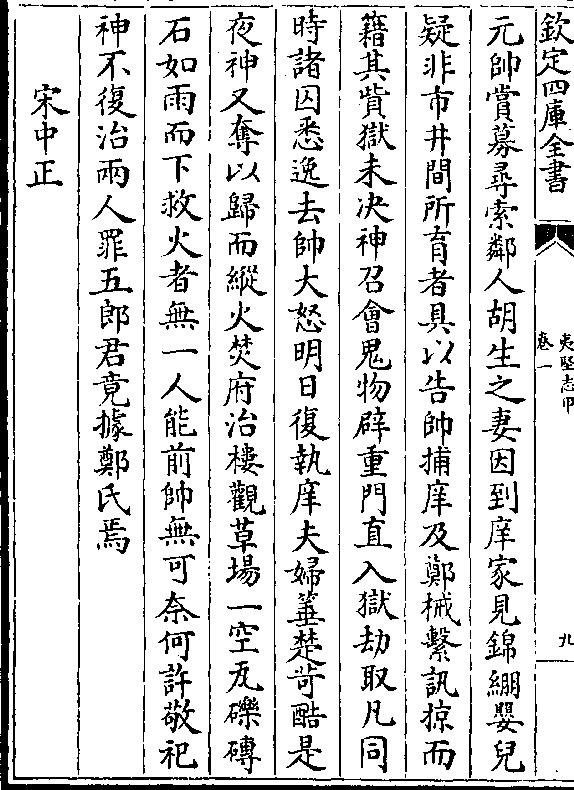 欽定四庫全書
夷堅志甲
卷一
九
元帥賞募尋索鄰人胡生之妻因到庠家見錦綳嬰兒
疑非市井間所育者具以告帥捕庠及鄭械繫訊掠而
籍其貲獄未決神召會鬼物辟重門直入獄劫取凡同
時諸囚悉逸去帥大怒明日復執庠夫婦箠楚苛酷是
夜神又奪以歸而縱火焚府治樓觀草場一空瓦礫磚
石如雨而下救火者無一人能前帥無可奈何許敬祀
神不復治兩人罪五郎君竟據鄭氏焉
宋中正